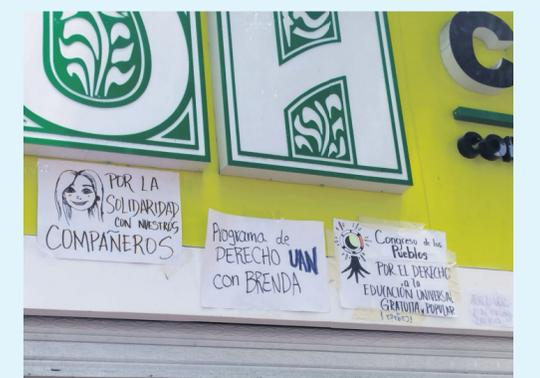 POR LA
SOLIDARIDAD
CON NUESTROS
COMPAÑEROS
Programa de
DERECHO UAN
con BRENDA
Congreso de los
Pueblos
POR EL DERECHO
a la
EDUCACIÓN UNIVERSAL
GRATUITA, POPULAR